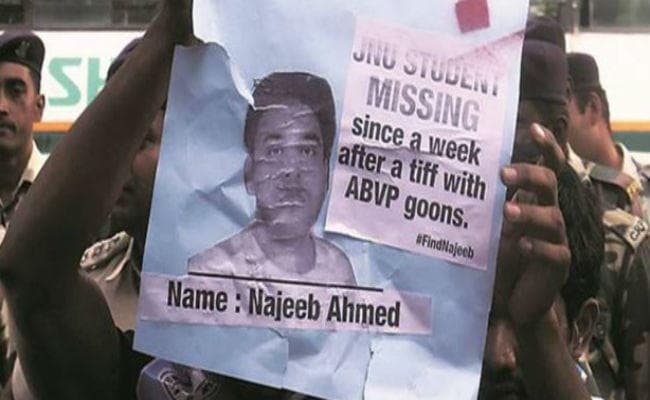 SH
JNU STUDENT
MISSING
since a week
after a tiff with
ABVP goons.
#FindNajeeb
Name : Najeeb Ahmed